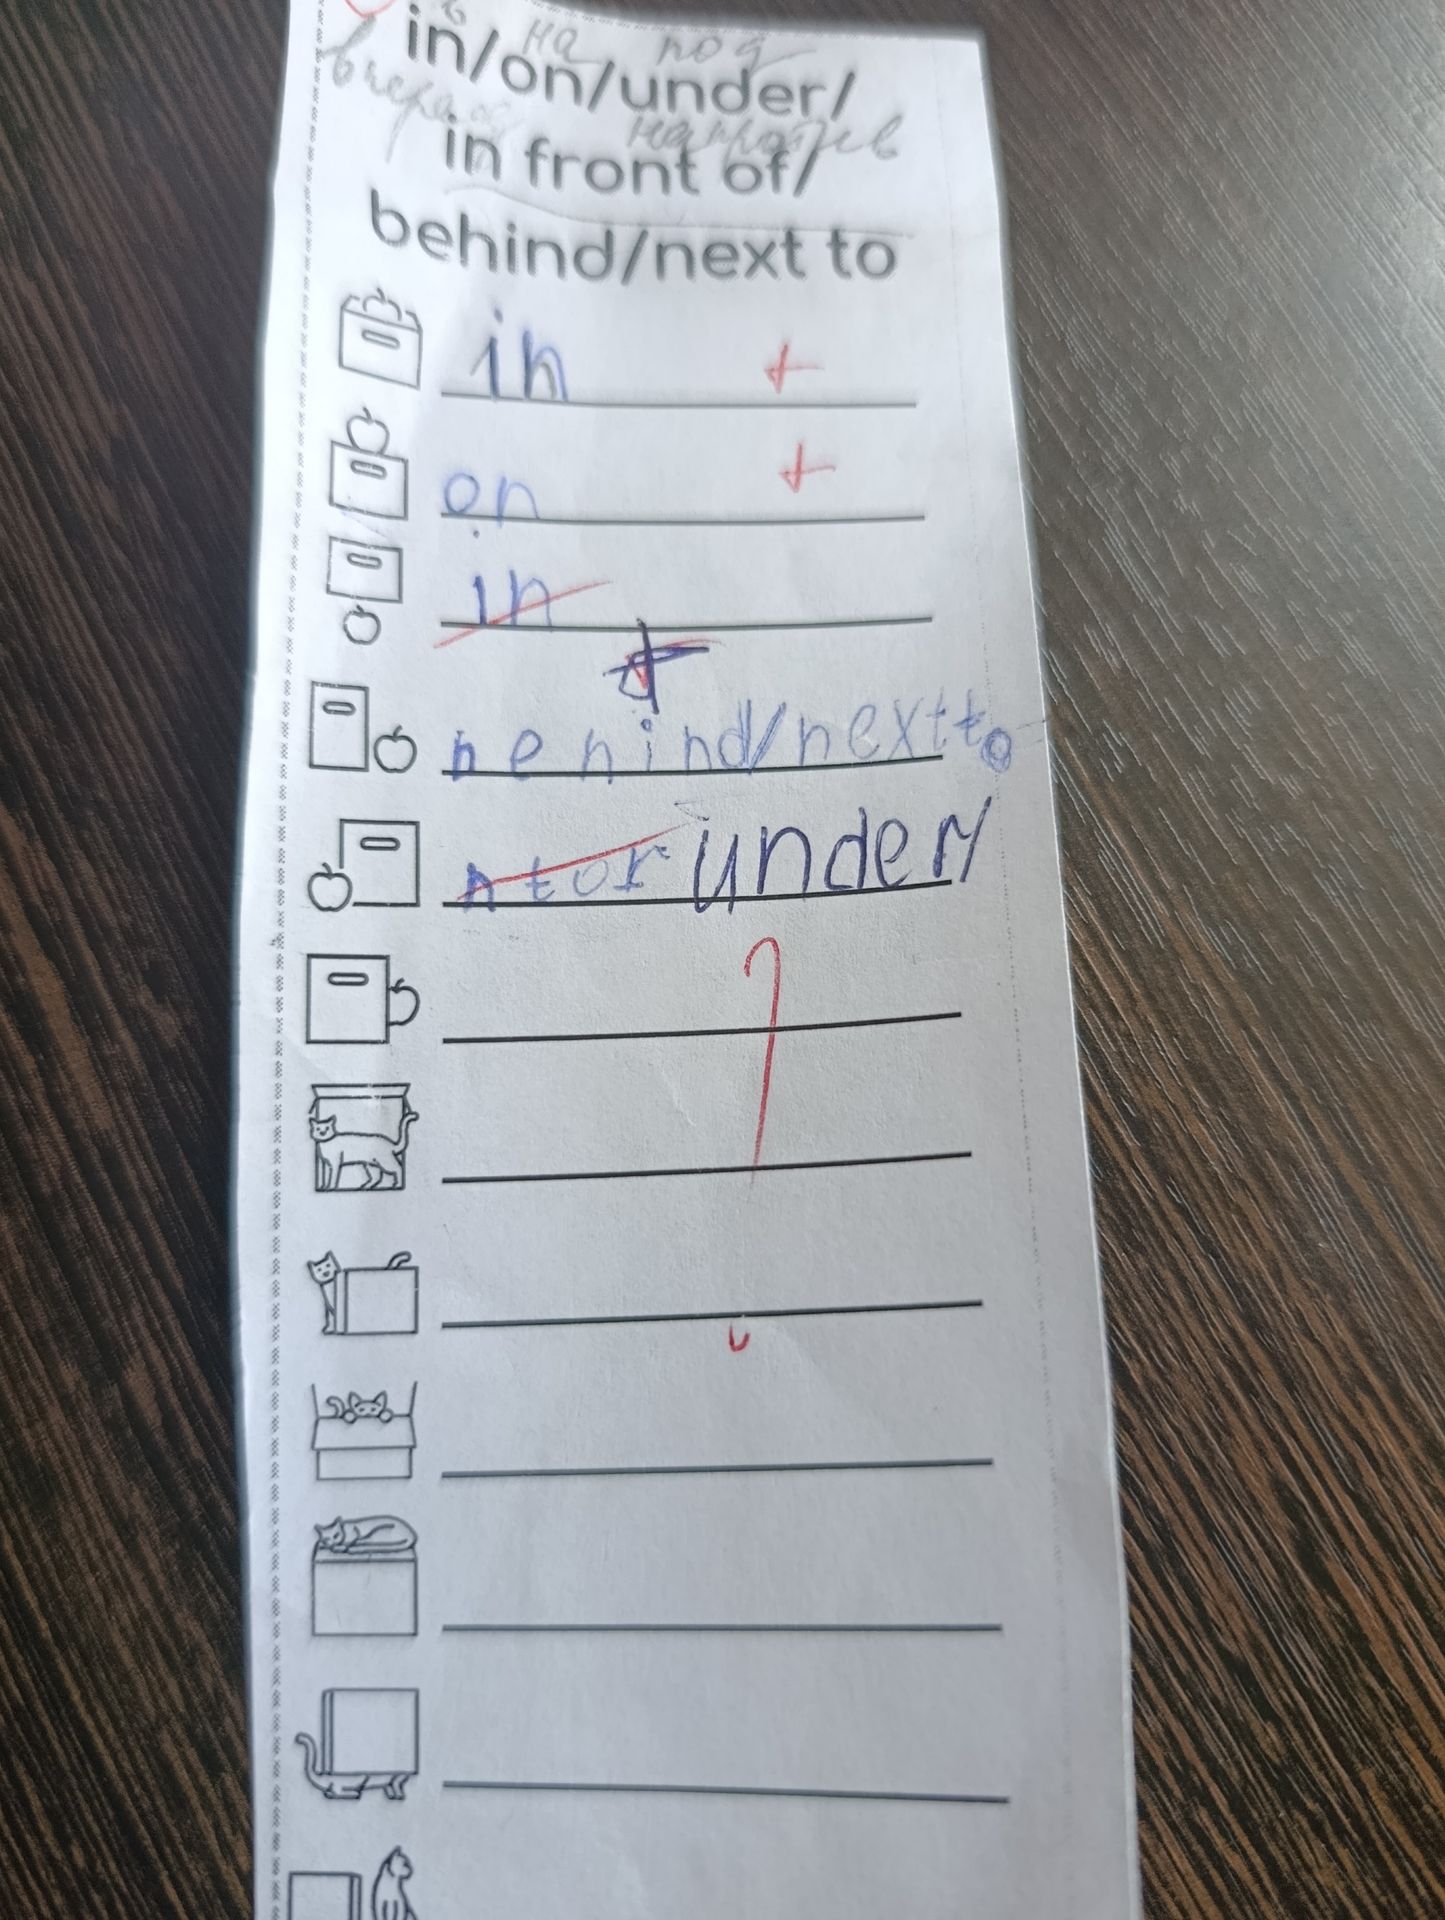 в на под
in/on/under/
вперед напротив
in front of/
behind/next to
in +
on +
in
+
behind/next to
ntor under/